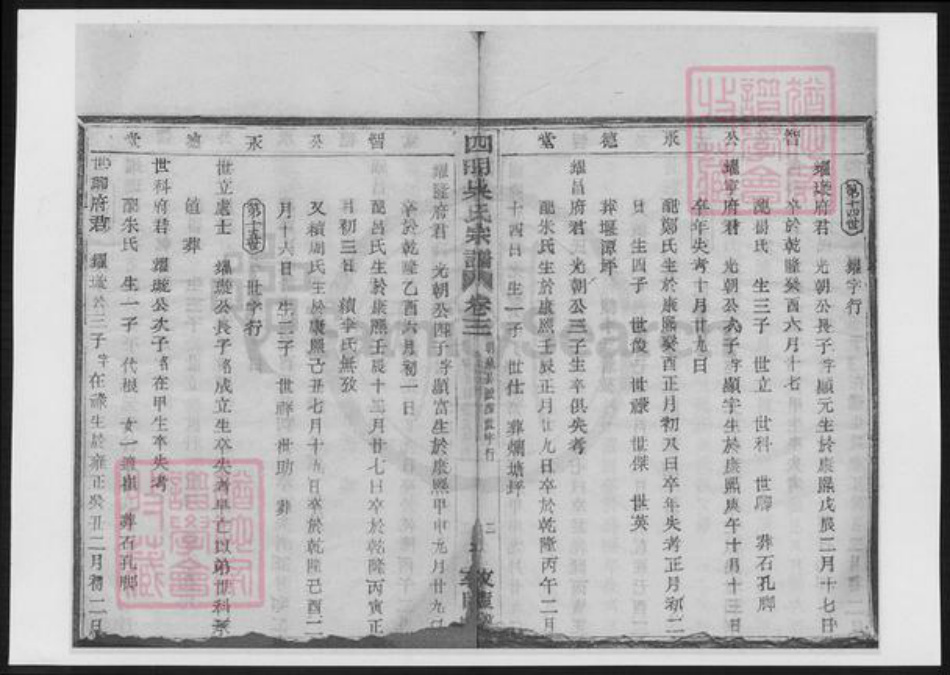 智公永德堂
第十四世 耀字行
耀璇府君 光朝公長子字顯元生於康熙戊辰二月十七日
卒於乾隆癸酉六月十七
配楊氏 生三子 世立 世科 世聊 葬石孔脚
耀寧府君 光朝公次子字顯宇生於康熙庚午十月十三日
卒年失考十月廿九日
配鄭氏生於康熙癸酉正月初又日卒年失考正月初二
日 生四子 世俊 世祿 世傑 世英
葬堰潭坪
耀昌府君 光朝公三子生卒俱失考
配朱氏生於康熙壬辰正月廿九日卒於乾隆丙午二月
十四日 生一子 世仕 葬爛塘坪
四明吳氏宗譜 卷三
二
智公永德堂
府君 光朝公四子字顯富生於康熙甲申九月廿九日
卒於乾隆乙酉六月初一日
配呂氏生於康熙壬辰十二月廿七日卒於乾隆丙寅正
月初三日 續李氏無攷
又續周氏生於康熙己丑七月十九日卒於乾隆己酉二
月十六日 生二子 世 世助 葬
第十五世 世字行
世立處士 耀璇公長子名成立生卒失考早亡以弟世科承
葬
世科府君 耀璇公次子名在甲生卒失考
配朱氏 生一子 年代根 女一適崔 葬石孔脚
世聊府君 耀璇公三子字在祿生於雍正癸丑二月初二日